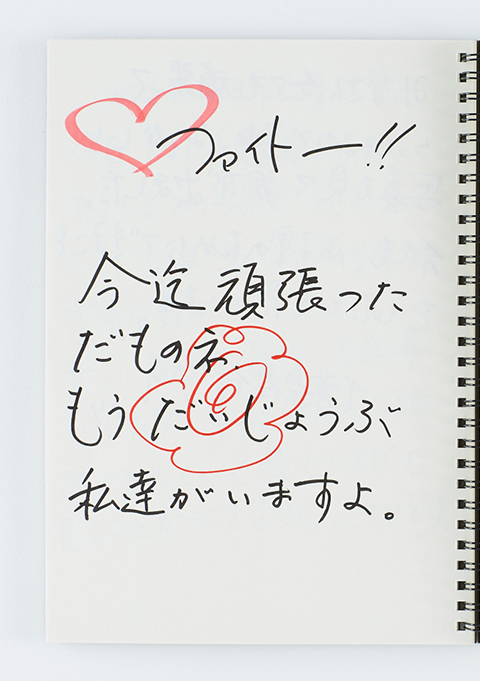 ファイトー!!
今迄頑張った
だものネ.
もうだいじょうぶ
私達がいますよ。